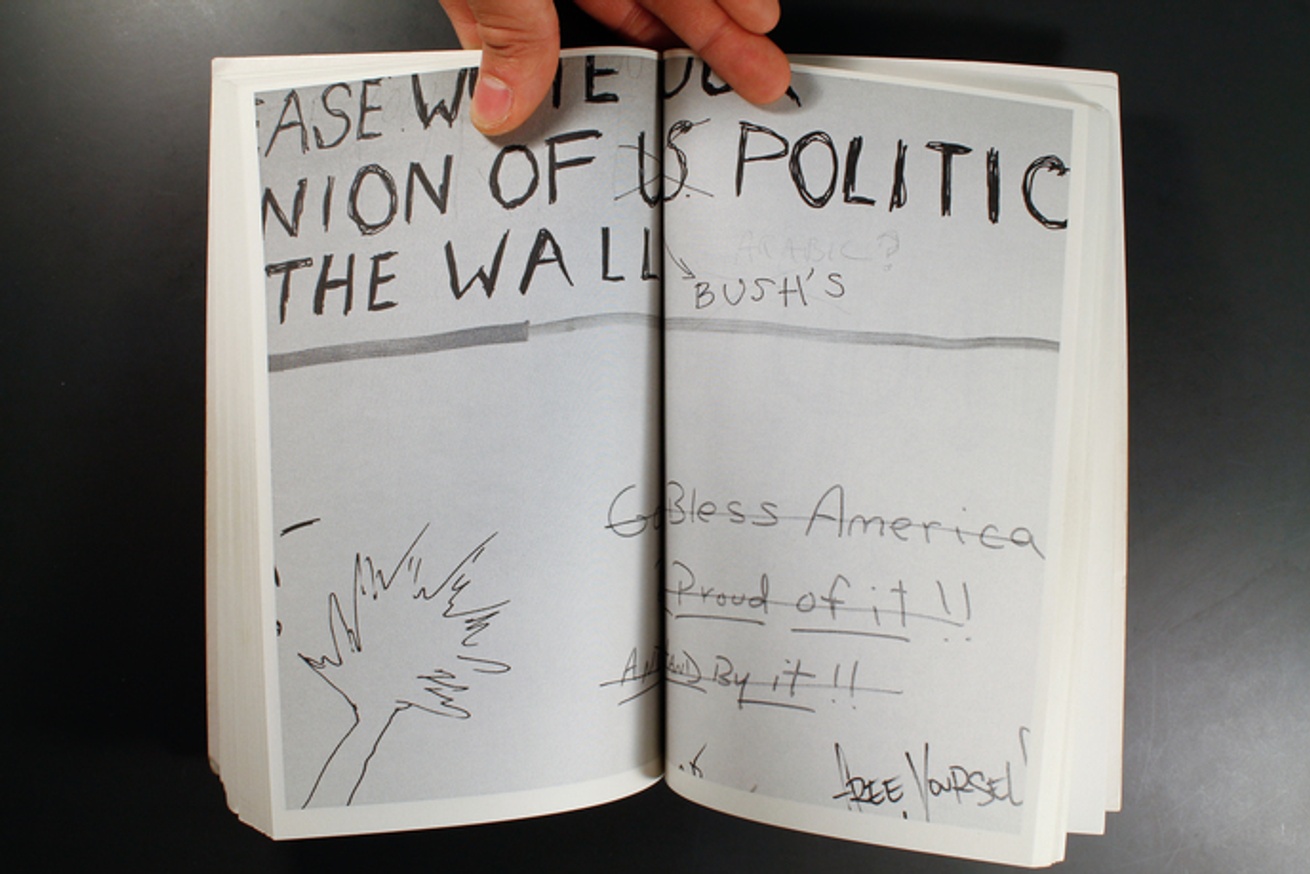 EASE W TE OUR
NION OF US POLITIC
THE WALL
ARABIC?
BUSH'S
Bless America
Proud of it !!
AND By it !!
FREE YOURSEL